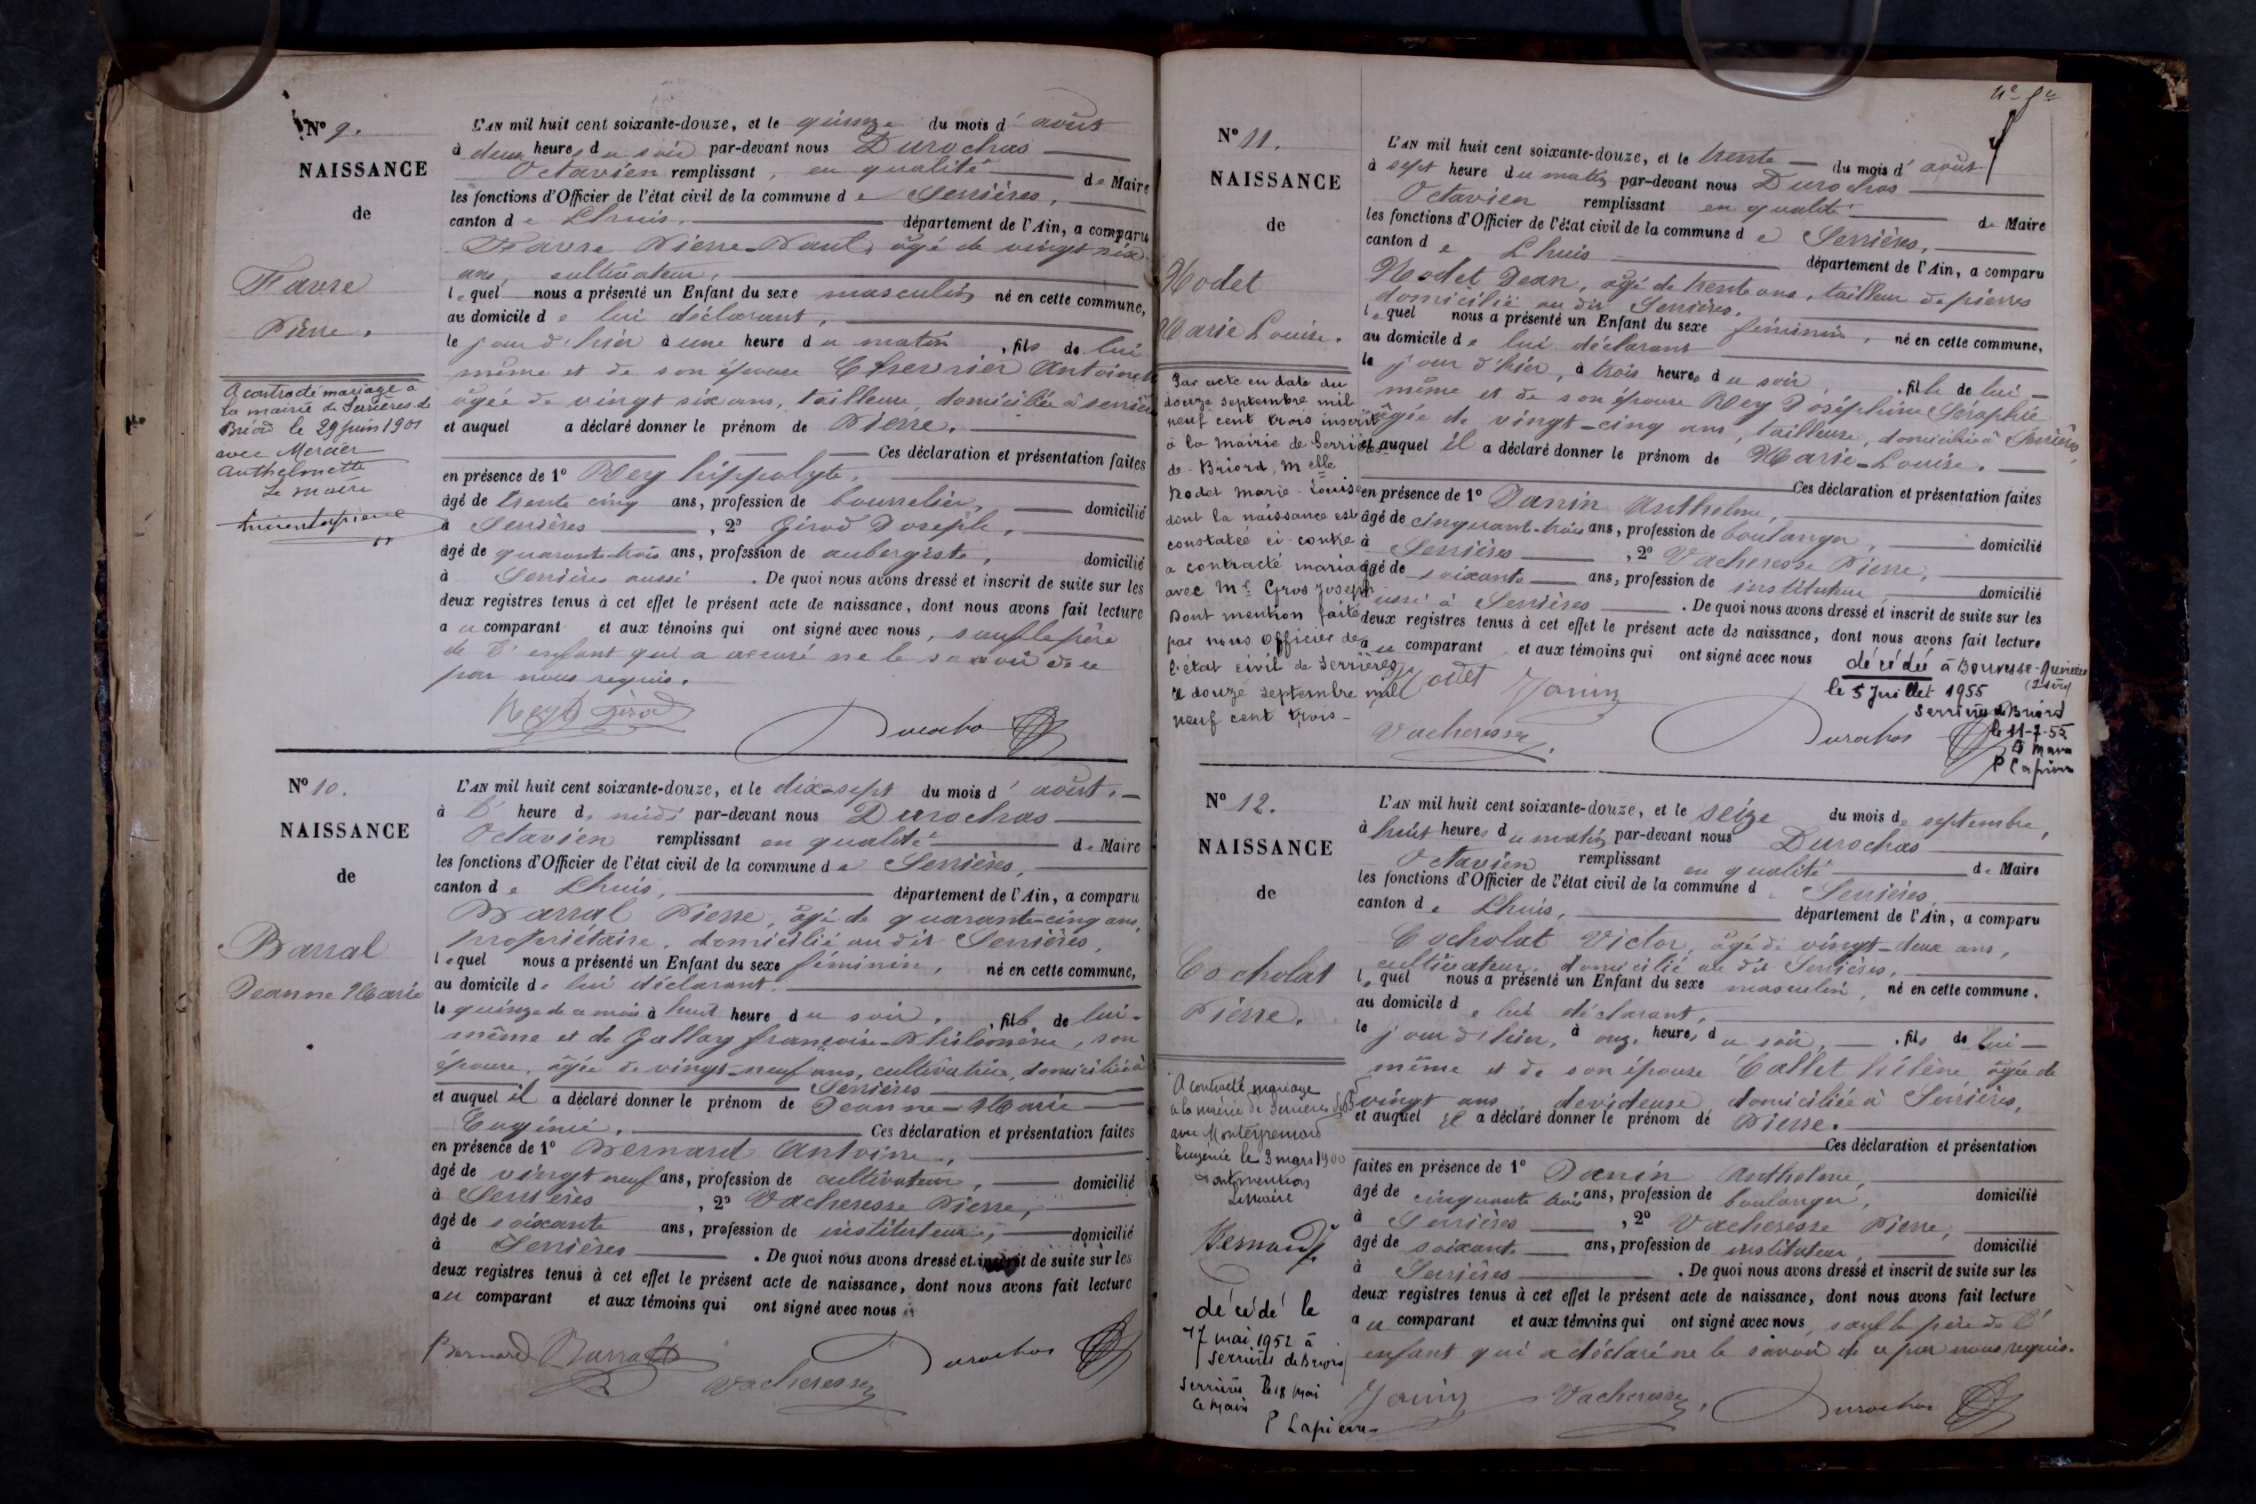 N° 9.
NAISSANCE
de
Favre
Pierre.
A contracté mariage à
la mairie de Serrières de
Briord le 29 juin 1901
avec Mercier
Anthelmette
Le maire
L'AN mil huit cent soixante-douze, et le quinze du mois d'août
à deux heures du soir par-devant nous Durochas
Octavien remplissant, en qualité de Maire
les fonctions d'Officier de l'état civil de la commune de Serrières,
canton de Lhuis, département de l'Ain, a comparu
Favre Pierre-Paul, âgé de vingt-six
ans, cultivateur,
lequel nous a présenté un Enfant du sexe masculin né en cette commune,
au domicile de lui déclarant,
le jour d'hier à une heure du matin, fils de lui
même et de son épouse Chervrier Antoinette
âgée de vingt six ans, tailleuse, domiciliée à Serrières
et auquel a déclaré donner le prénom de Pierre.
Ces déclaration et présentation faites
en présence de 1° Rey hippolyte,
âgé de trente cinq ans, profession de bourrelier, domicilié
à Serrières, 2° Girod Joseph,
âgé de quarante-trois ans, profession de aubergiste, domicilié
à Serrières aussi. De quoi nous avons dressé et inscrit de suite sur les
deux registres tenus à cet effet le présent acte de naissance, dont nous avons fait lecture
au comparant et aux témoins qui ont signé avec nous, sauf le père
de l'enfant qui a accusé ne le savoir de ce
par nous requis.
Rey h Girod Durochas
N° 10.
NAISSANCE
de
Barral
Jeanne Marie
L'AN mil huit cent soixante-douze, et le dix-sept du mois d'août.
à l'heure de midi par-devant nous Durochas
Octavien remplissant en qualité de Maire
les fonctions d'Officier de l'état civil de la commune de Serrières,
canton de Lhuis, département de l'Ain, a comparu
Barral Pierre, âgé de quarante-cinq ans,
propriétaire, domicilié au dit Serrières,
lequel nous a présenté un Enfant du sexe féminin, né en cette commune,
au domicile de lui déclarant.
le quinze de ce mois à huit heure du soir, fille de lui-
même et de Gallay françoise-Philomène, son
épouse, âgée de vingt-neuf ans, cultivatrice, domiciliée à
Serrières
et auquel il a déclaré donner le prénom de Jeanne-Marie
Eugénie. Ces déclaration et présentation faites
en présence de 1° Bernard Antoine,
âgé de vingt neuf ans, profession de cultivateur, domicilié
à Serrières, 2° Vacheresse Pierre,
âgé de soixante ans, profession de instituteur, domicilié
à Serrières. De quoi nous avons dressé et inscrit de suite sur les
deux registres tenus à cet effet le présent acte de naissance, dont nous avons fait lecture
au comparant et aux témoins qui ont signé avec nous
Bernard Barral Vacheresse Durochas
N° 11.
NAISSANCE
de
Modet
Marie Louise.
Par acte en date du
douze septembre mil
neuf cent trois inscrit
à la mairie de Serrières
de Briord, Melle
Modet Marie-Louise
dont la naissance est
constatée ci-contre
a contracté mariage
avec Mr Gros Joseph
Dont mention faite
par nous officier de
l'état civil de Serrières
le douze septembre mil
neuf cent trois
L'AN mil huit cent soixante-douze, et le trente du mois d'août
à sept heure du matin par-devant nous Durochas
Octavien remplissant en qualité de Maire
les fonctions d'Officier de l'état civil de la commune de Serrières,
canton de Lhuis département de l'Ain, a comparu
Modet Jean, âgé de trente ans, tailleur de pierres
domicilié au dit Serrières.
lequel nous a présenté un Enfant du sexe féminin, né en cette commune,
au domicile de lui déclarant
le jour d'hier, à trois heures du soir, fille de lui-
même et de son épouse Rey Joséphine Séraphie
âgée de vingt-cinq ans, tailleuse, domiciliée à Serrières,
et auquel il a déclaré donner le prénom de Marie-Louise.
Ces déclaration et présentation faites
en présence de 1° Janin Anthelme,
âgé de cinquante-trois ans, profession de boulanger, domicilié
à Serrières, 2° Vacheresse Pierre,
âgé de soixante ans, profession de instituteur, domicilié
aussi à Serrières. De quoi nous avons dressé et inscrit de suite sur les
deux registres tenus à cet effet le présent acte de naissance, dont nous avons fait lecture
au comparant et aux témoins qui ont signé avec nous
Modet Janin
Vacheresse Durochas
décédée à Bouvesse-Quirieu
(Isère)
le 5 Juillet 1955
Serrières de Briord
le 11-7-55
Le Maire
P Lapierre
N° 12.
NAISSANCE
de
Cocholat
Pierre.
A contracté mariage
à la mairie de Serrières
avec Montgremard
Eugénie le 3 mars 1900
Dont mention
Le Maire
décédé le
17 mai 1952 à
Serrières de Briord
Serrières le 18 Mai
Le Maire
P Lapierre
L'AN mil huit cent soixante-douze, et le seize du mois de septembre,
à huit heures du matin par-devant nous Durochas
Octavien remplissant en qualité de Maire
les fonctions d'Officier de l'état civil de la commune d Serrières,
canton de Lhuis, département de l'Ain, a comparu
Cocholat Victor, âgé de vingt-deux ans,
cultivateur, domicilié au dit Serrières,
lequel nous a présenté un Enfant du sexe masculin, né en cette commune.
au domicile de lui déclarant,
le jour d'hier, à onze heures du soir, fils de lui-
même et de son épouse Callet hélène, âgée de
vingt ans, devideuse domiciliée à Serrières,
et auquel il a déclaré donner le prénom dé Pierre.
Ces déclaration et présentation
faites en présence de 1° Janin Anthelme,
âgé de cinquante trois ans, profession de boulanger, domicilié
à Serrières, 2° Vacheresse Pierre,
âgé de soixante ans, profession de instituteur, domicilié
à Serrières. De quoi nous avons dressé et inscrit de suite sur les
deux registres tenus à cet effet le présent acte de naissance, dont nous avons fait lecture
au comparant et aux témoins qui ont signé avec nous, sauf le père de l'
enfant qui a déclaré ne le savoir de ce par nous requis.
Janin Vacheresse, Durochas